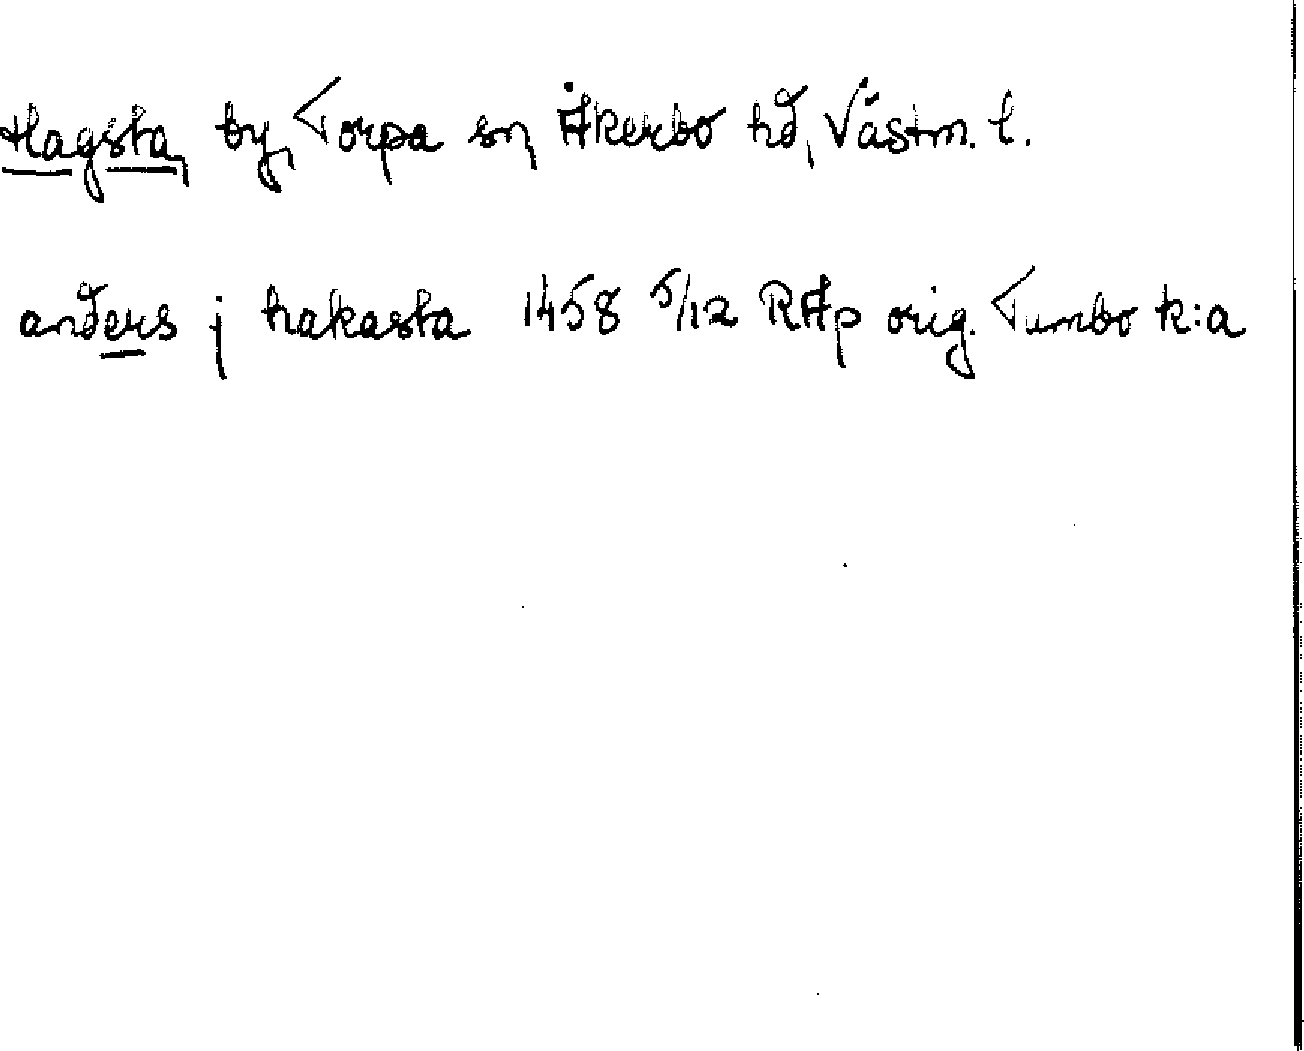 Hagsta, by, Torpa sn, Åkerbo hd, Västm. l.
anders j hakasta 1458 5/12 RAp orig. Tumbo k:a